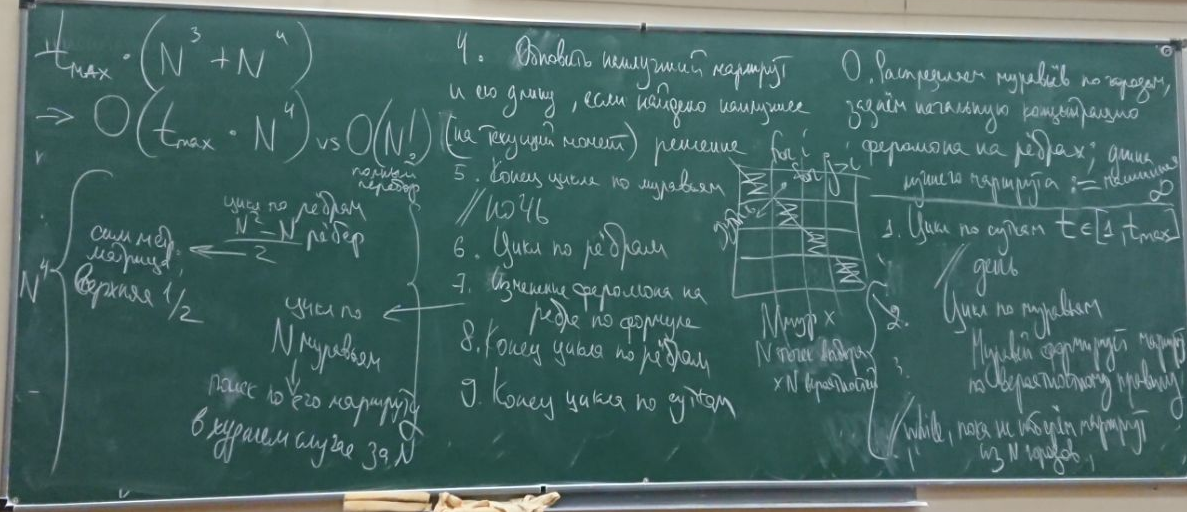 t_max · (N³ + N⁴)
⇒ O(t_max · N⁴) vs O(N!)
полный
перебор
N⁴
симметр.
матрица,
верхняя 1/2
цикл по рёбрам
N² - N рёбер
2
цикл по
N муравьям
поиск по его маршруту
в худшем случае за N
4. Обновить наилучший маршрут
и его длину, если найдено наилучшее
(на текущий момент) решение
5. Конец цикла по муравьям
// НОЧЬ
6. Цикл по рёбрам
7. Изменение феромона на
ребре по формуле
8. Конец цикла по рёбрам
9. Конец цикла по суткам
for i
for j > i
N мур ×
N
× N вероятностей
0. Распределяем муравьёв по городам,
задаём начальную концентрацию
феромона на рёбрах; длина
лучшего маршрута := ∞
1. Цикл по суткам t ∈ [1, t_max]
// день
2. Цикл по муравьям
3. Муравей формирует маршрут
по вероятностному правилу
// while, пока не маршрут
из N городов